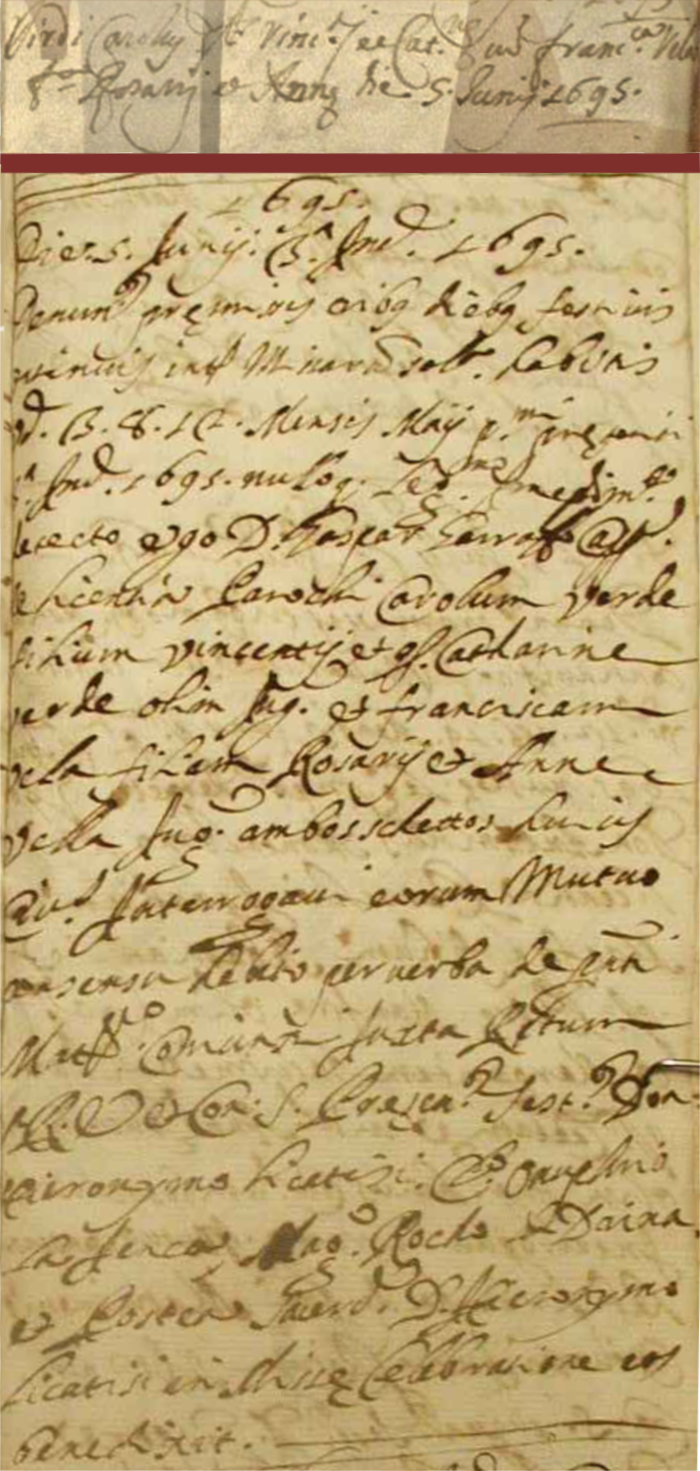 Virdi Carolus f. Vinc. et Cat. cum Franc.ca Vella
f. Rosarij et Anne die 5. Junij 1695.
1695.
Die 5. Junij 3.a Ind. 1695.
Denun. premissis tribq diebq festivis
Missar. solt. habitis
d. 3. 8. 12. Mensis Maij p.mi presentis
Ind. 1695. nulloq. Leg.mo Impedim.to
detecto ego D. Gaspar
de licentia Parochi Carolum Verde
filium Vincentij et q. Catharine
verde olim Jug. et franciscam
vela filiam Rosarij et Anne
vella Jug. ambos huius
Civ. Interrogavi eorum Mutuo
consensu habito per verba de pnti
Matr.o Coniunxi Juxta Ritum
S. R. E. et Con: S. Presen. test. Don
Hieronymo Licatisi. Cl. Onuphrio
la Mag.o Rocho Daina
et Postea Sacerd. D. Hieronymo
licatisi in Misse Celebratione eos
benedixit.